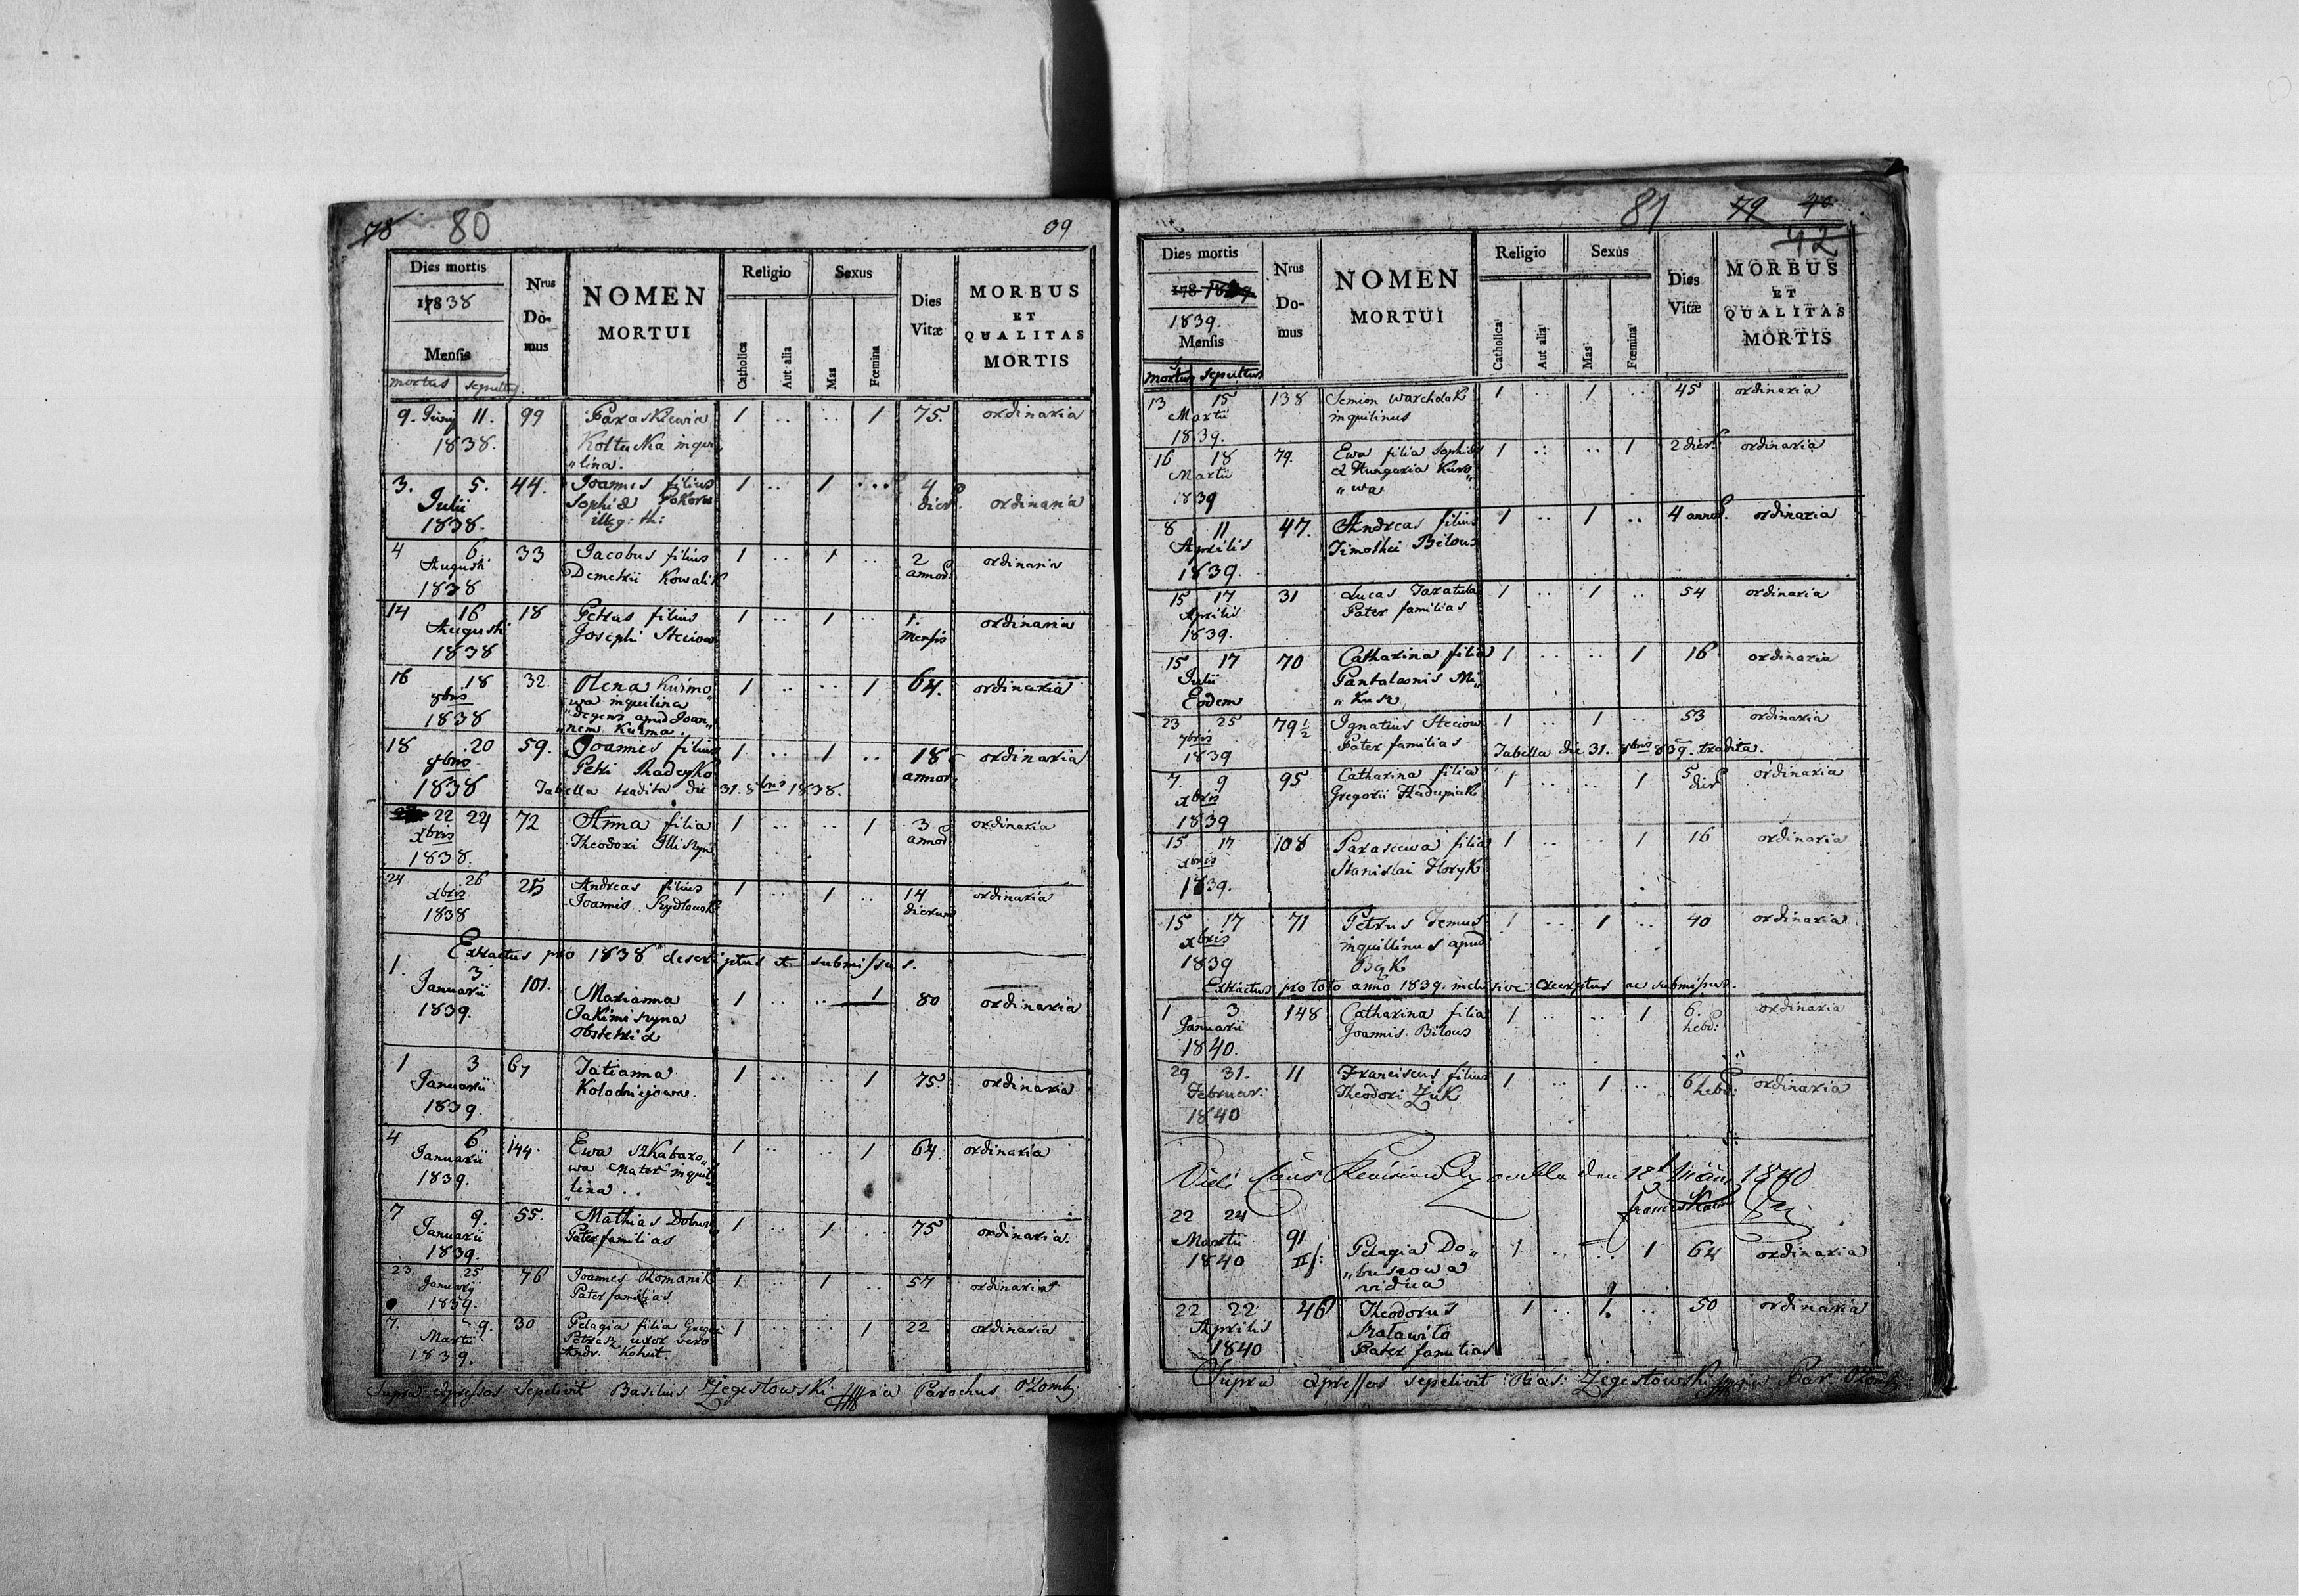 78 80 39
Dies mortis Nrus Do-mus NOMEN MORTUI Religio Sexus Dies Vitæ MORBUS ET QUALITAS MORTIS
17838
Mensis Catholica Aut alia Mas Fœmina
mortus sepultus
9. Junij 11. 99 Paraskiewia 1 .. .. 1 75. ordinaria
1838. Koltucka inqui„
„lina.
3. 5. 44. Joannes filius 1 .. 1 ... 4 ordinaria
Julii Sophiæ dier.
1838. illeg: th:
4 6. 33 Jacobus filius 1 .. 1 .. 2 ordinaria
Augusti Demetrii Kowalik annor.
1838
14 16 18 Petrus filius 1 .. 1 .. 1. ordinaria
Augusti Josephi Steciow Mensis
1838
16 18 32. Olena Kuzmo„ 1 .. .. 1 64. ordinaria
8bris wa inquilina
1838 degens apud Joan„
„nem Kuzma.
18 20 59. Joannes filius 1 .. 1 .. 18 ordinaria
8bris Petri Hadeyko annor.
1838 Tabella tradita die 31. 8bris 1838.
22 24 72 Anna filia 1 .. .. 1 3 ordinaria
xbris Theodori annor.
1838.
24 26 25 Andreas filius 1 .. 1 .. 14 ordinaria
xbris Joannis Szydlowski dierum
1838
Extractus pro 1838 descriptus et submissus.
1. 3 101. Marianna 1 .. .. 1 80 ordinaria
Januarii Jakimiszyna
1839. obstetrix
1 3 67 Tatianna 1 .. .. 1 75 ordinaria
Januarii Kolodniejowa.
1839.
4 6 144. Ewa Szkabaro„ 1 .. .. 1 64. ordinaria
Januarii wa Mater inquil
1839. „lina..
7 9. 55. Mathias Dobusz 1 .. 1 .. 75 ordinaria.
Januarii Pater familias
1839.
23 25 76 Joannes Romanik 1 .. 1 .. 57 ordinaria
Januarij Pater familias
1839.
7. 9. 30 Pelagia filia Gregori 1 .. .. 1 22 ordinaria
Martii Petrasz uxor vero
1839. Andr. Kohut.
Supra expressos sepelivit Basilius Zegestowski mppria Parochus Ozomb:
81 79 40
42
Dies mortis Nrus Do-mus NOMEN MORTUI Religio Sexus Dies Vitæ MORBUS ET QUALITAS MORTIS
178
1839.
Mensis Catholica Aut alia Mas Fœmina
mortus sepultus
13 15 138 Semion Warcholak 1 .. 1 .. 45 ordinaria
Martii inquilinus
1839.
16 18 79. Ewa filia Sophiæ 1 .. .. 1 2 dier. ordinaria
Martii ex Hungaria Kuro„
1839 „wa
8 11 47. Andreas filius 1 .. 1 .. 4 annor. ordinaria
Aprilis Timothei Bilous
1839.
15 17 31 Lucas Taratula 1 .. 1 .. 54 ordinaria
Aprilis Pater familias
1839.
15 17 70 Catharina filia 1 .. .. 1 16 ordinaria
Julii Pantaleonis Mi„
Eodem „kusz
23 25 79½ Ignatius Steciow 1 .. 1 .. 53 ordinaria
7bris Pater familias Tabella die 31. 8bris 839. tradita.
1839
7. 9 95 Catharina filia 1 .. .. 1 5 ordinaria
xbris Gregorii Hadupiak dier
1839
15 17 108 Parascewa filia 1 .. .. 1 16 ordinaria
xbris Stanislai Horyk
1839.
15 17 71 Petrus Demus 1 .. 1 .. 40 ordinaria
xbris inquillinus apud
1839 Bąk
Extractus pro toto anno 1839. inclusive excerptus ac submissus.
1 3 148 Catharina filia 1 .. .. 1 6. ordinaria
Januarii Joannis Bilous hebd:
1840.
29 31. 11 Franciscus filius 1 .. 1 .. 6 ordinaria
Februar: Theodori Żuk hebd:
1840
Vidi 1840
22 24
Martii 91 Pelagia Do„ 1 .. .. 1 64 ordinaria
1840 „buszowa
vidua
22 22 46 Theodorus 1 .. 1. .. 50 ordinaria
Aprilis
1840 Pater familias
Supra expressos sepelivit Bas: Zegestowski mppria Par. Ozomb: